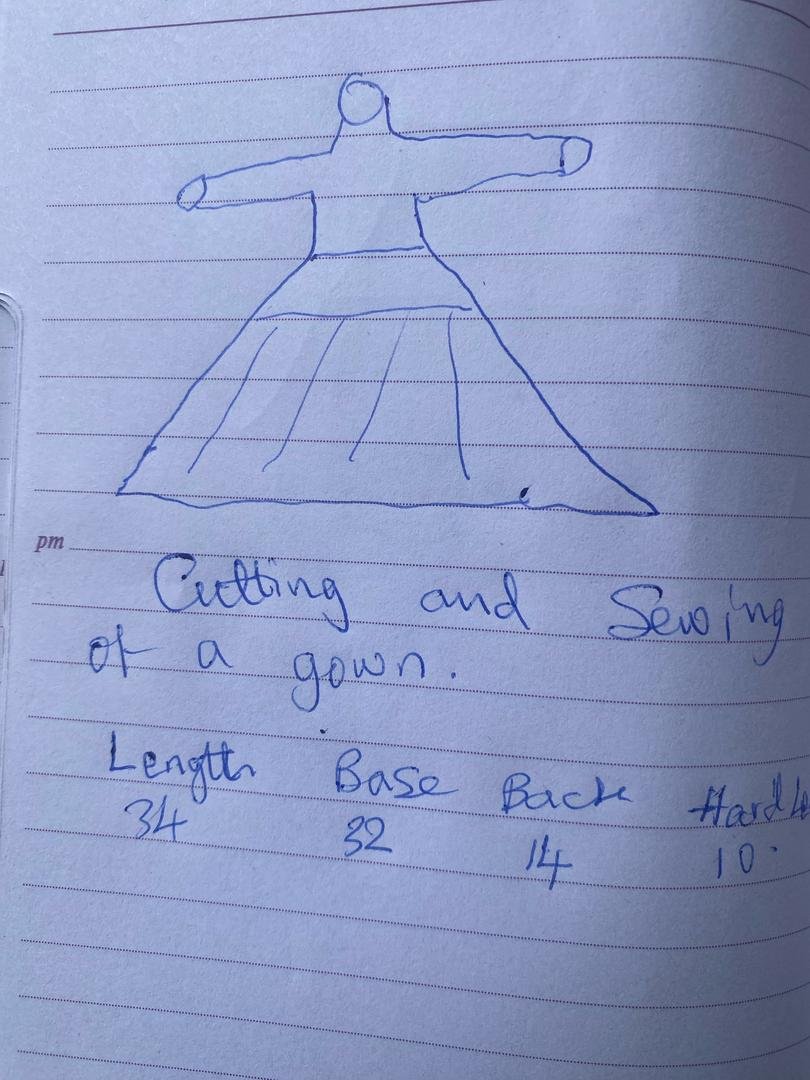 pm
Cutting and Sewing
of a gown.
Length Base Back
34 32 14 10.